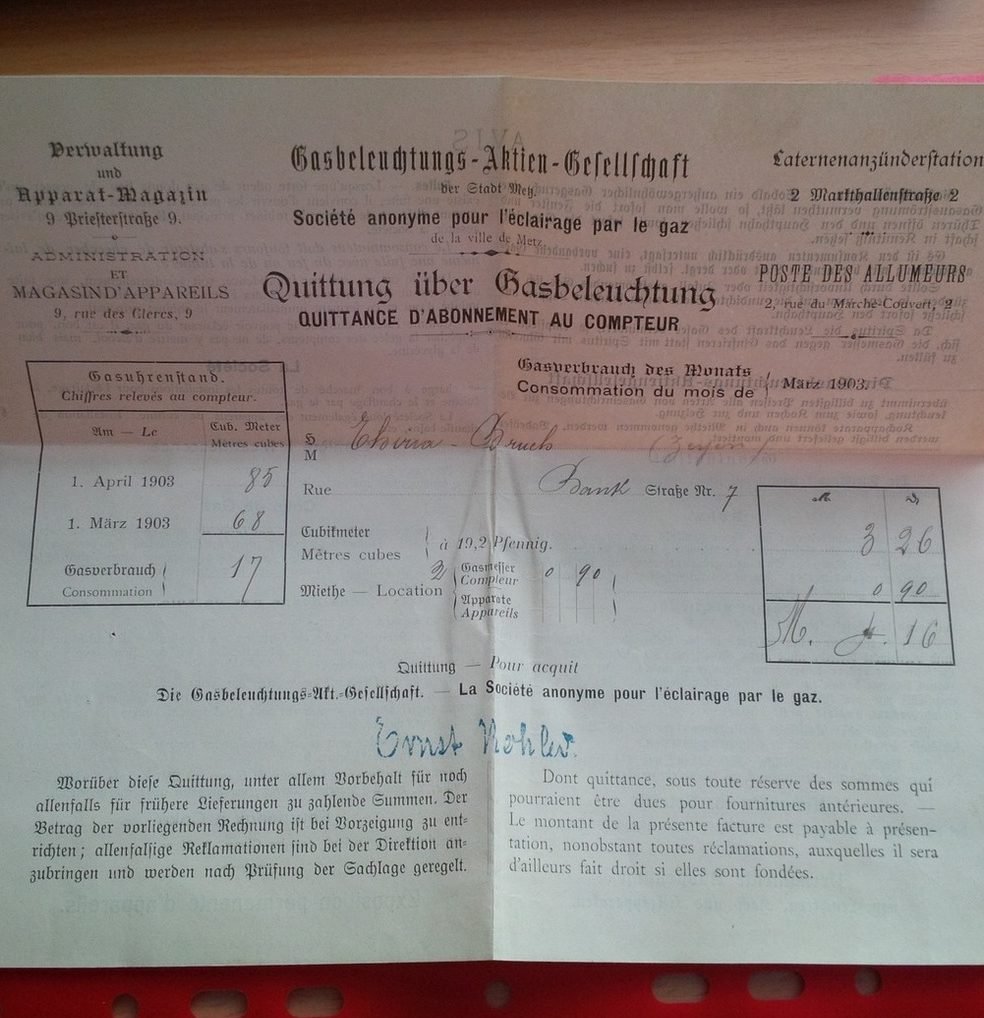 Verwaltung
und
Apparat-Magazin
9 Priesterstraße 9.
ADMINISTRATION
ET
MAGASIN D'APPAREILS
9, rue des Clercs, 9
Gasbeleuchtungs-Aktien-Gesellschaft
der Stadt Metz.
Société anonyme pour l'éclairage par le gaz
de la ville de Metz
Quittung über Gasbeleuchtung
QUITTANCE D'ABONNEMENT AU COMPTEUR
Laternenanzünderstation
2 Markthallenstraße 2
POSTE DES ALLUMEURS
2, rue du Marché-Couvert, 2
Gasverbrauch des Monats
Consommation du mois de
März 1903.
Gasuhrenstand.
Chiffres relevés au compteur.
Am — Le
Cub. Meter
Mètres cubes
1. April 1903 85
1. März 1903 68
Gasverbrauch
Consommation
17
H
M
Rue Bank Straße Nr. 7
Cubikmeter
Mètres cubes
à 19,2 Pfennig.
3 26
Miethe — Location
Gasmesser
Compteur
0 90
Apparate
Appareils
0 90
M. 4. 16
Quittung — Pour acquit
Die Gasbeleuchtungs-Akt.-Gesellschaft. — La Société anonyme pour l'éclairage par le gaz.
Ernst Kohler
Worüber diese Quittung, unter allem Vorbehalt für noch
allenfalls für frühere Lieferungen zu zahlende Summen. Der
Betrag der vorliegenden Rechnung ist bei Vorzeigung zu ent-
richten; allenfalsige Reklamationen sind bei der Direktion an-
zubringen und werden nach Prüfung der Sachlage geregelt.
Dont quittance, sous toute réserve des sommes qui
pourraient être dues pour fournitures antérieures. —
Le montant de la présente facture est payable à présen-
tation, nonobstant toutes réclamations, auxquelles il sera
d'ailleurs fait droit si elles sont fondées.